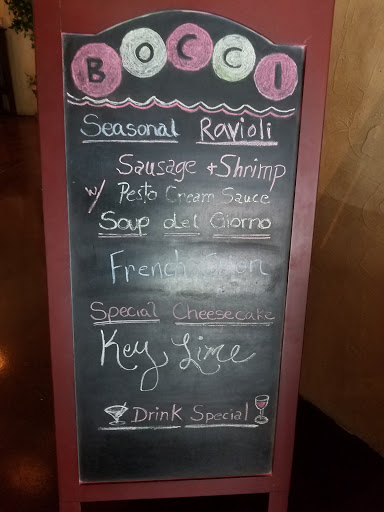 BOCCI
Seasonal Ravioli
Sausage + Shrimp
w/ Pesto Cream Sauce
Soup del Giorno
French Onion
Special Cheesecake
Key Lime
Drink Special